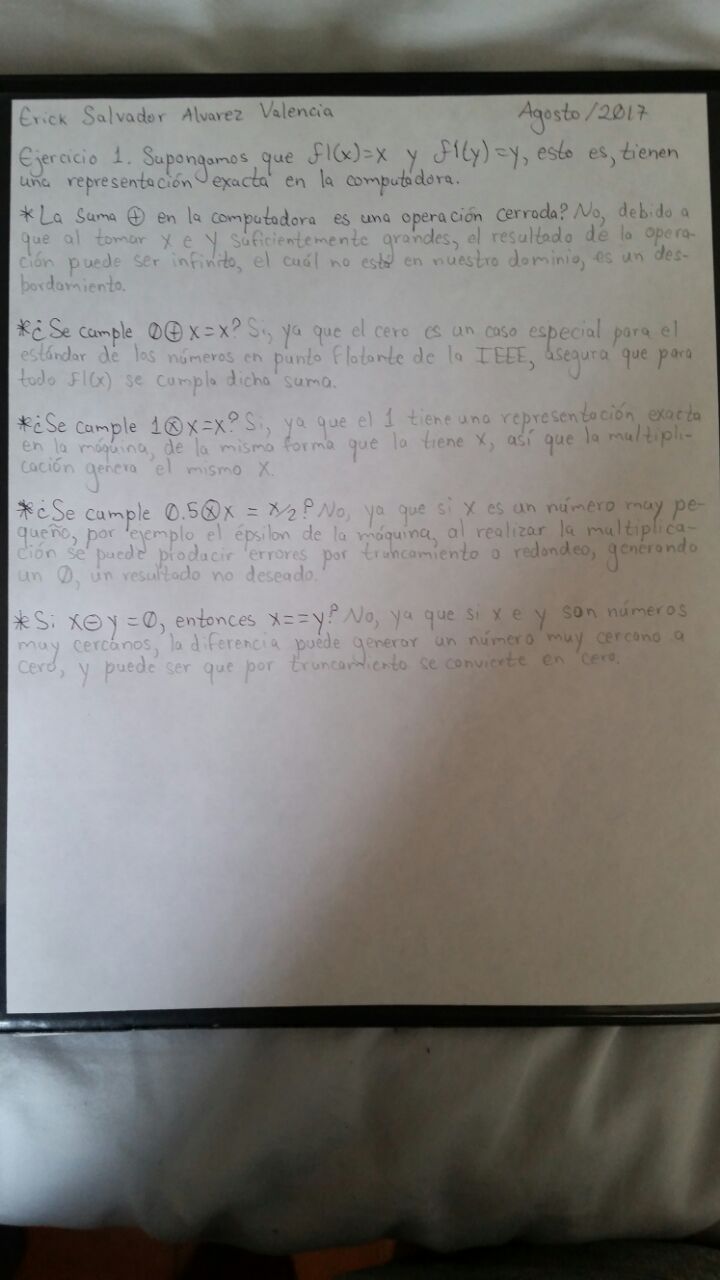 Erick Salvador Alvarez Valencia Agosto/2017
Ejercicio 1. Supongamos que fl(x)=x y fl(y)=y, esto es, tienen
una representación exacta en la computadora.
*La suma ⊕ en la computadora es una operación cerrada? No, debido a
que al tomar x e y suficientemente grandes, el resultado de la opera-
ción puede ser infinito, el cuál no está en nuestro dominio, es un des-
bordamiento.
*¿Se cumple 0⊕x=x? Si, ya que el cero es un caso especial para el
estándar de los números en punto flotante de la IEEE, asegura que para
todo fl(x) se cumpla dicha suma.
*¿Se cumple 1⊗x=x? Si, ya que el 1 tiene una representación exacta
en la máquina, de la misma forma que la tiene x, así que la multipli-
cación genera el mismo x.
*¿Se cumple 0.5⊗x = x/2? No, ya que si x es un número muy pe-
queño, por ejemplo el épsilon de la máquina, al realizar la multiplica-
ción se puede producir errores por truncamiento o redondeo, generando
un 0, un resultado no deseado.
*Si x⊖y=0, entonces x==y? No, ya que si x e y son números
muy cercanos, la diferencia puede generar un número muy cercano a
cero, y puede ser que por truncamiento se convierte en cero.